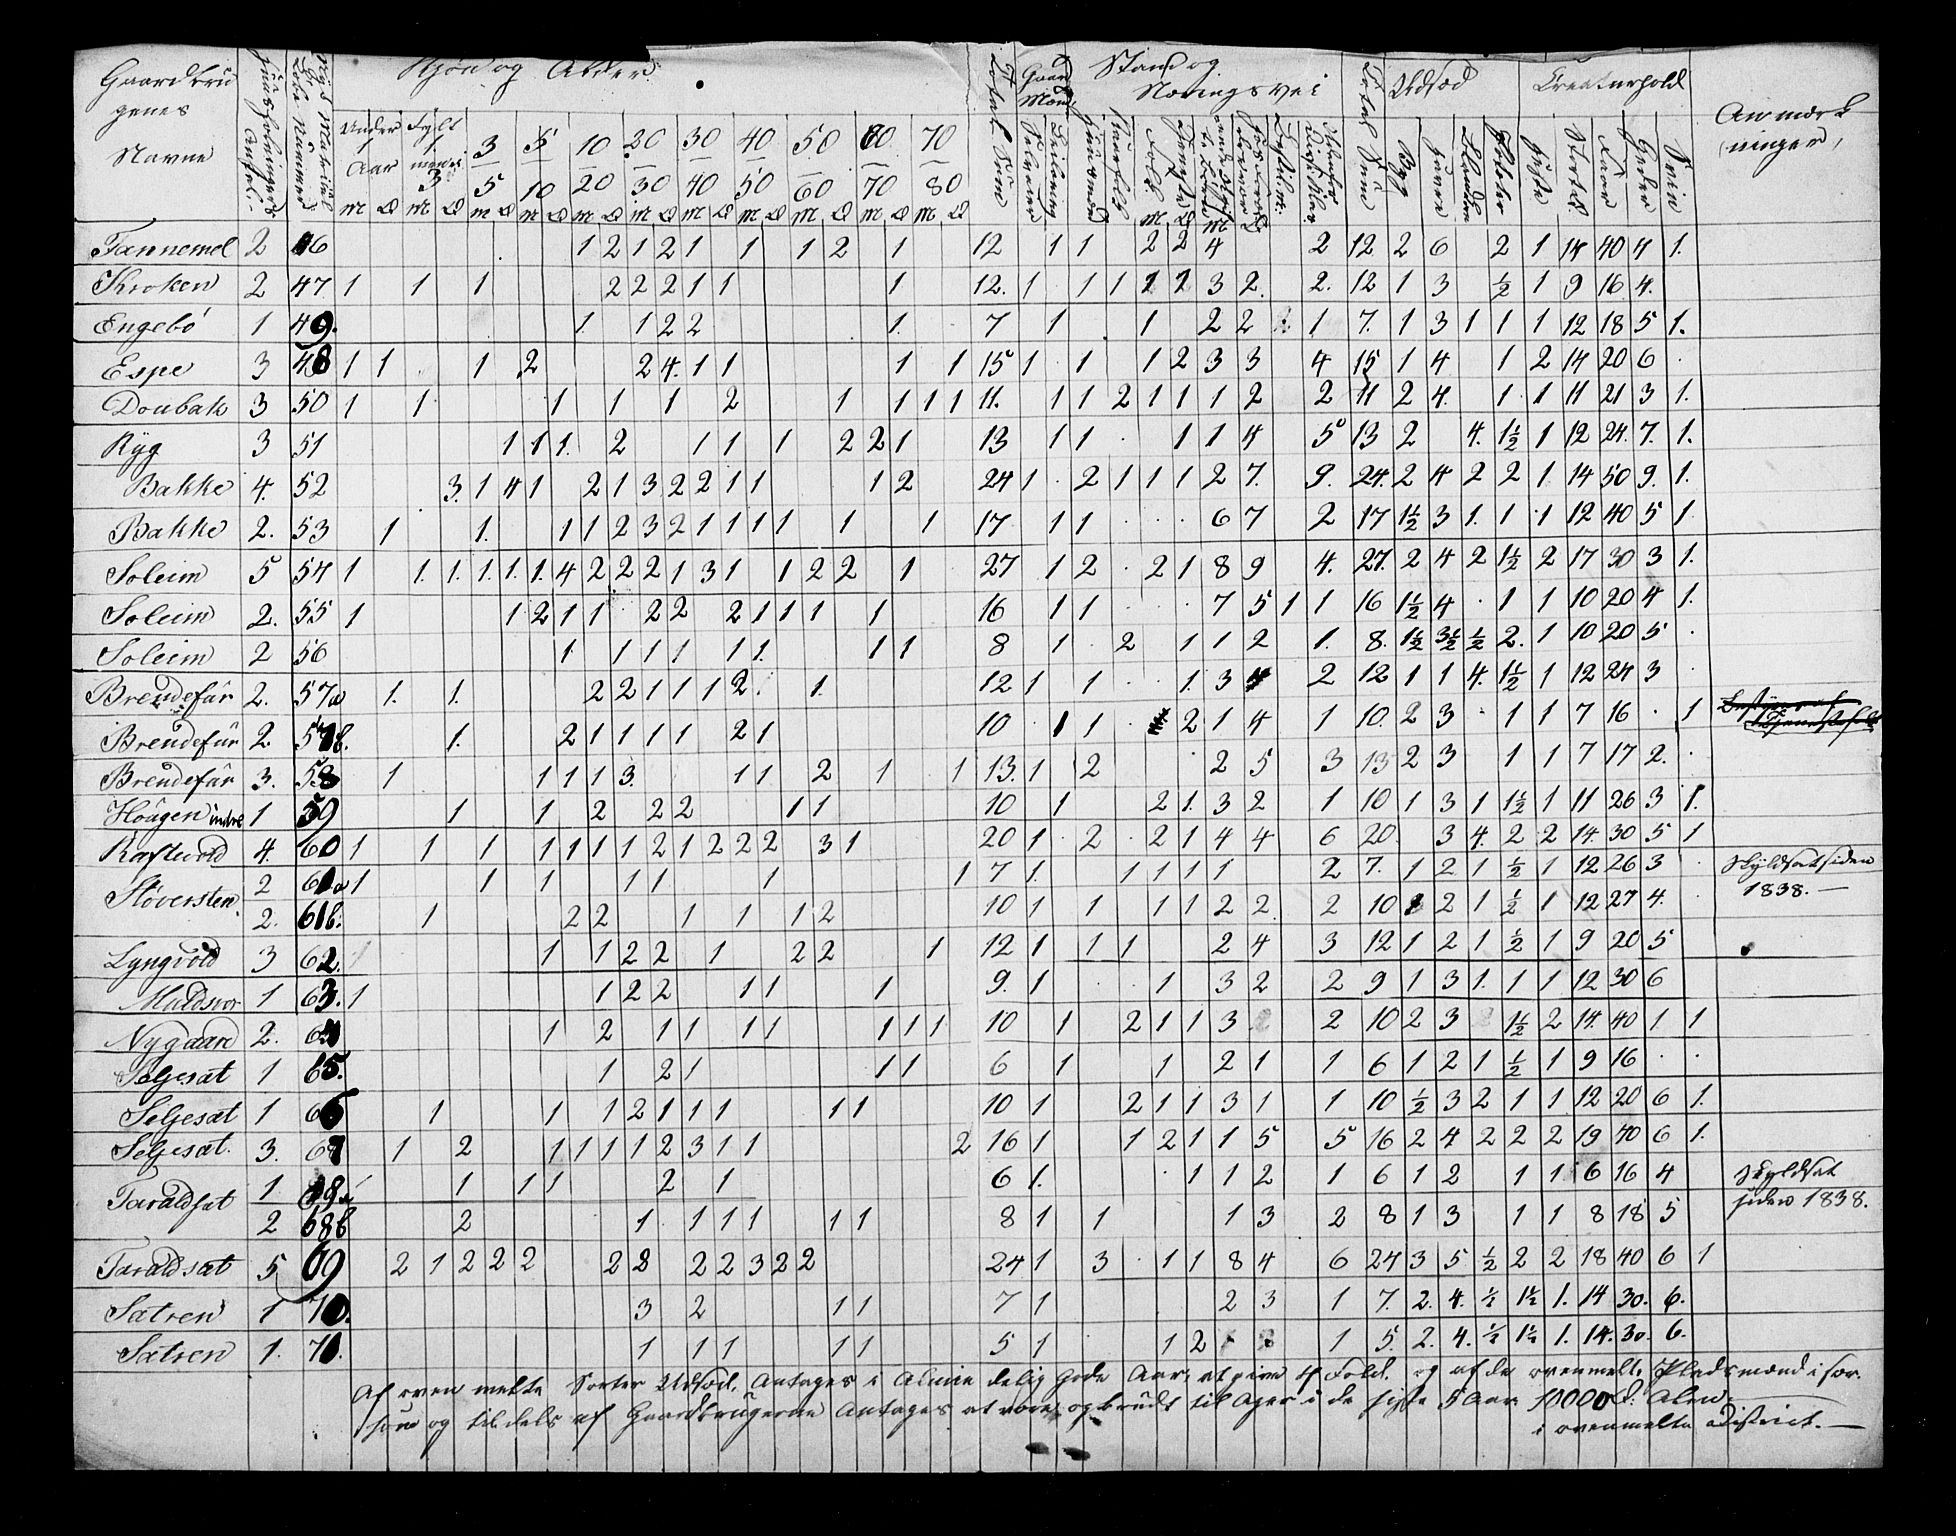 Gaardbru Kjön og Alder. Total Sum Gaard Mænd Stand og Total Sum Udsæd Creaturhold Anmærk
genes Næringsvei ninger,
Navne
Under 1 Aar 3/5 5/10 10/20 20/30 30/40 40/50 50/60 60/70 70/80 Byg Havre Poteter Heste Stort Faar Geder Svin
M Q M Q M Q M Q M Q M Q M Q M Q M Q M Q M Q
Tannemel 2 46 1 2 1 2 1 1 1 2 1 12 1 1 2 2 4 2 12 2 6 2 1 14 40 4 1.
Kroken 2 47 1 1 1 2 2 2 1 1 1 12. 1 1 1 1 2 3 2. 2. 12 1 3 ½ 1 9 16 4.
Engebö 1 49. 1. 1 2 2 1. 7 1 1 2 2 1 7. 1 3 1 1 1 12 18 5 1.
Espe 3 48 1 1 1 2 2 4. 1 1 1 1 15 1 1 1 2 3 3 4 15 1 4 1 2 14 20 6
Doubak 3 50 1 1 1 1 1 2 1 1 1 1 11. 1 1 2 1 1 1 2 2 11 2 4. 1 1 11 21 3 1.
Ryg 3 51 1 1 1. 2 1 1 1 2 2 1 13 1 1 1 1 4 5 13 2 4. 1½ 1 12 24. 7. 1.
Bakke 4. 52 3. 1 4 1 2 1 3 2 2 1 1 1 2 24 1 2 1 1 1 2 7. 9. 24. 2 4 2 2 1. 14 50 9. 1.
Bakke 2. 53 1 1. 1 1 2 3 2 1 1 1 1 1 1 17 1 1 6 7 2 17 1½ 3 1. 1 1 12 40 5 1
Soleim 5 54 1 1. 1. 1. 1. 1. 4 2 2 2 1 3 1 1 2 2 1 27 1 2 2 1 8 9 4. 27. 2 4 2 1½ 2 17 30 3 1.
Soleim 2. 55 1 1 2 1 1 2 2 2 1 1 1 1 16 1 1 7 5 1 1 16 1½ 4 1 1 10 20 4 1.
Soleim 2 56 1 1 1 1 1 1. 1 1 8 1 2 1 1 2 1. 8. 1½ 3½ ½ 2. 1 10 20 5
Breudefür 2. 57a 1. 1. 2 2 1 1 1 2. 1. 12 1 1 1. 3 4 2 12 1 1 4. 1½ 1 12 24 3
Breudefür 2. 57b. 1. 2 1 1 1 1 2 1 10 1 1 2 1 4 1 10. 2 3 1 1 7 16 1
Breudefür 3. 58 1 1 1 1 3. 1 1 2 1 1 13. 1 2 2 5 3 13 2 3 1 1 7 17 2.
Hougen indre 1 59 1 1 2 2 2 1 1 10 1 2 1. 3 2 1 10 1 3 1 1½ 1 11 26 3 1.
Raftevold 4. 60 1 1 1 1 1 1 1 2 1 2 2 2 3 1 20 1 2 2 1 4 4 6 20 3 4. 2 2 14. 30 5 1
Stöversten 2 61a 1 1 1 1 1 1 1 7 1. 1 1 1 1 2 7. 1 2 1 ½ 1 12 26 3 Skyldsat siden
2. 61b. 1 2 2 1 1 1 2 10 1 1 1 1 2 2 2 10 1 2 1 ½ 1 12 27 4. 1838. —
Lyngvold 3 62. 1 1 2 2 1 2 2 1 12 1 1 1 2 4 3 12 1 2 1 ½ 1 9 20 5
Muldsvor 1 63. 1 1 2 2 1 1 1 9. 1 1 3 2 2 9 1 3 1. 1 1 12 30 6
Nygaard 2. 64 1 2 1 1 1 1 1 1 1 10 1 2 1 1 3 2 10 2 3 1½ 2 14. 40 1 1
Seljesæt 1 65. 1 2 1 1 1 6 1 1 2 1 1 6 1 2 1 ½ 1 9 16
Seljesæt 1 66 1 1 1 2 1 1 1 1 1 10 1 2 1 1 3 1 1 10 ½ 3 2 1 1 12 20 6 1.
Seljesæt. 3. 67 1 2 1 1 1 1 2 3 1 1 2 16 1 1 2 1 1 5 5 16 2 4 2 2 2 19 40 6 1.
Taraldsæt 1 68a 1 1 1 2 1 6 1. 1 1 2 1 6 1 2 1 1 6 16 4 Skyldsat
2 68b 2 1 1 1 1 1 1 8 1 1 1 3 2 8 1 3 1 1 8 18 5 siden 1838.
Taraldsæt 5 69 2 1 2 2 2 2 2 2 2 3 2 2 24 1 3 1 1 8 4 6 24 3 5 ½ 2 2 18 40 6 1
Sætren 1 70. 3 2 1 1 7 1 2 3 1 7. 2. 4. ½ 1½ 1. 14 30. 6.
Sætren 1. 71. 1 1 1 1 1 5 1 1 2 1 5. 2. 4. ½ 1½ 1. 14. 30. 6.
Af oven melte Sorter Udsæd, antages i Almindelig gode Aar, at give 4 Fold. og af de ovenmelte Pladsmænd i sær.
og tildels af Gaardbrugerne antages at være opbrudt til Ager i de siste 5 Aar 10000 Alen
i ovenmelte District. —